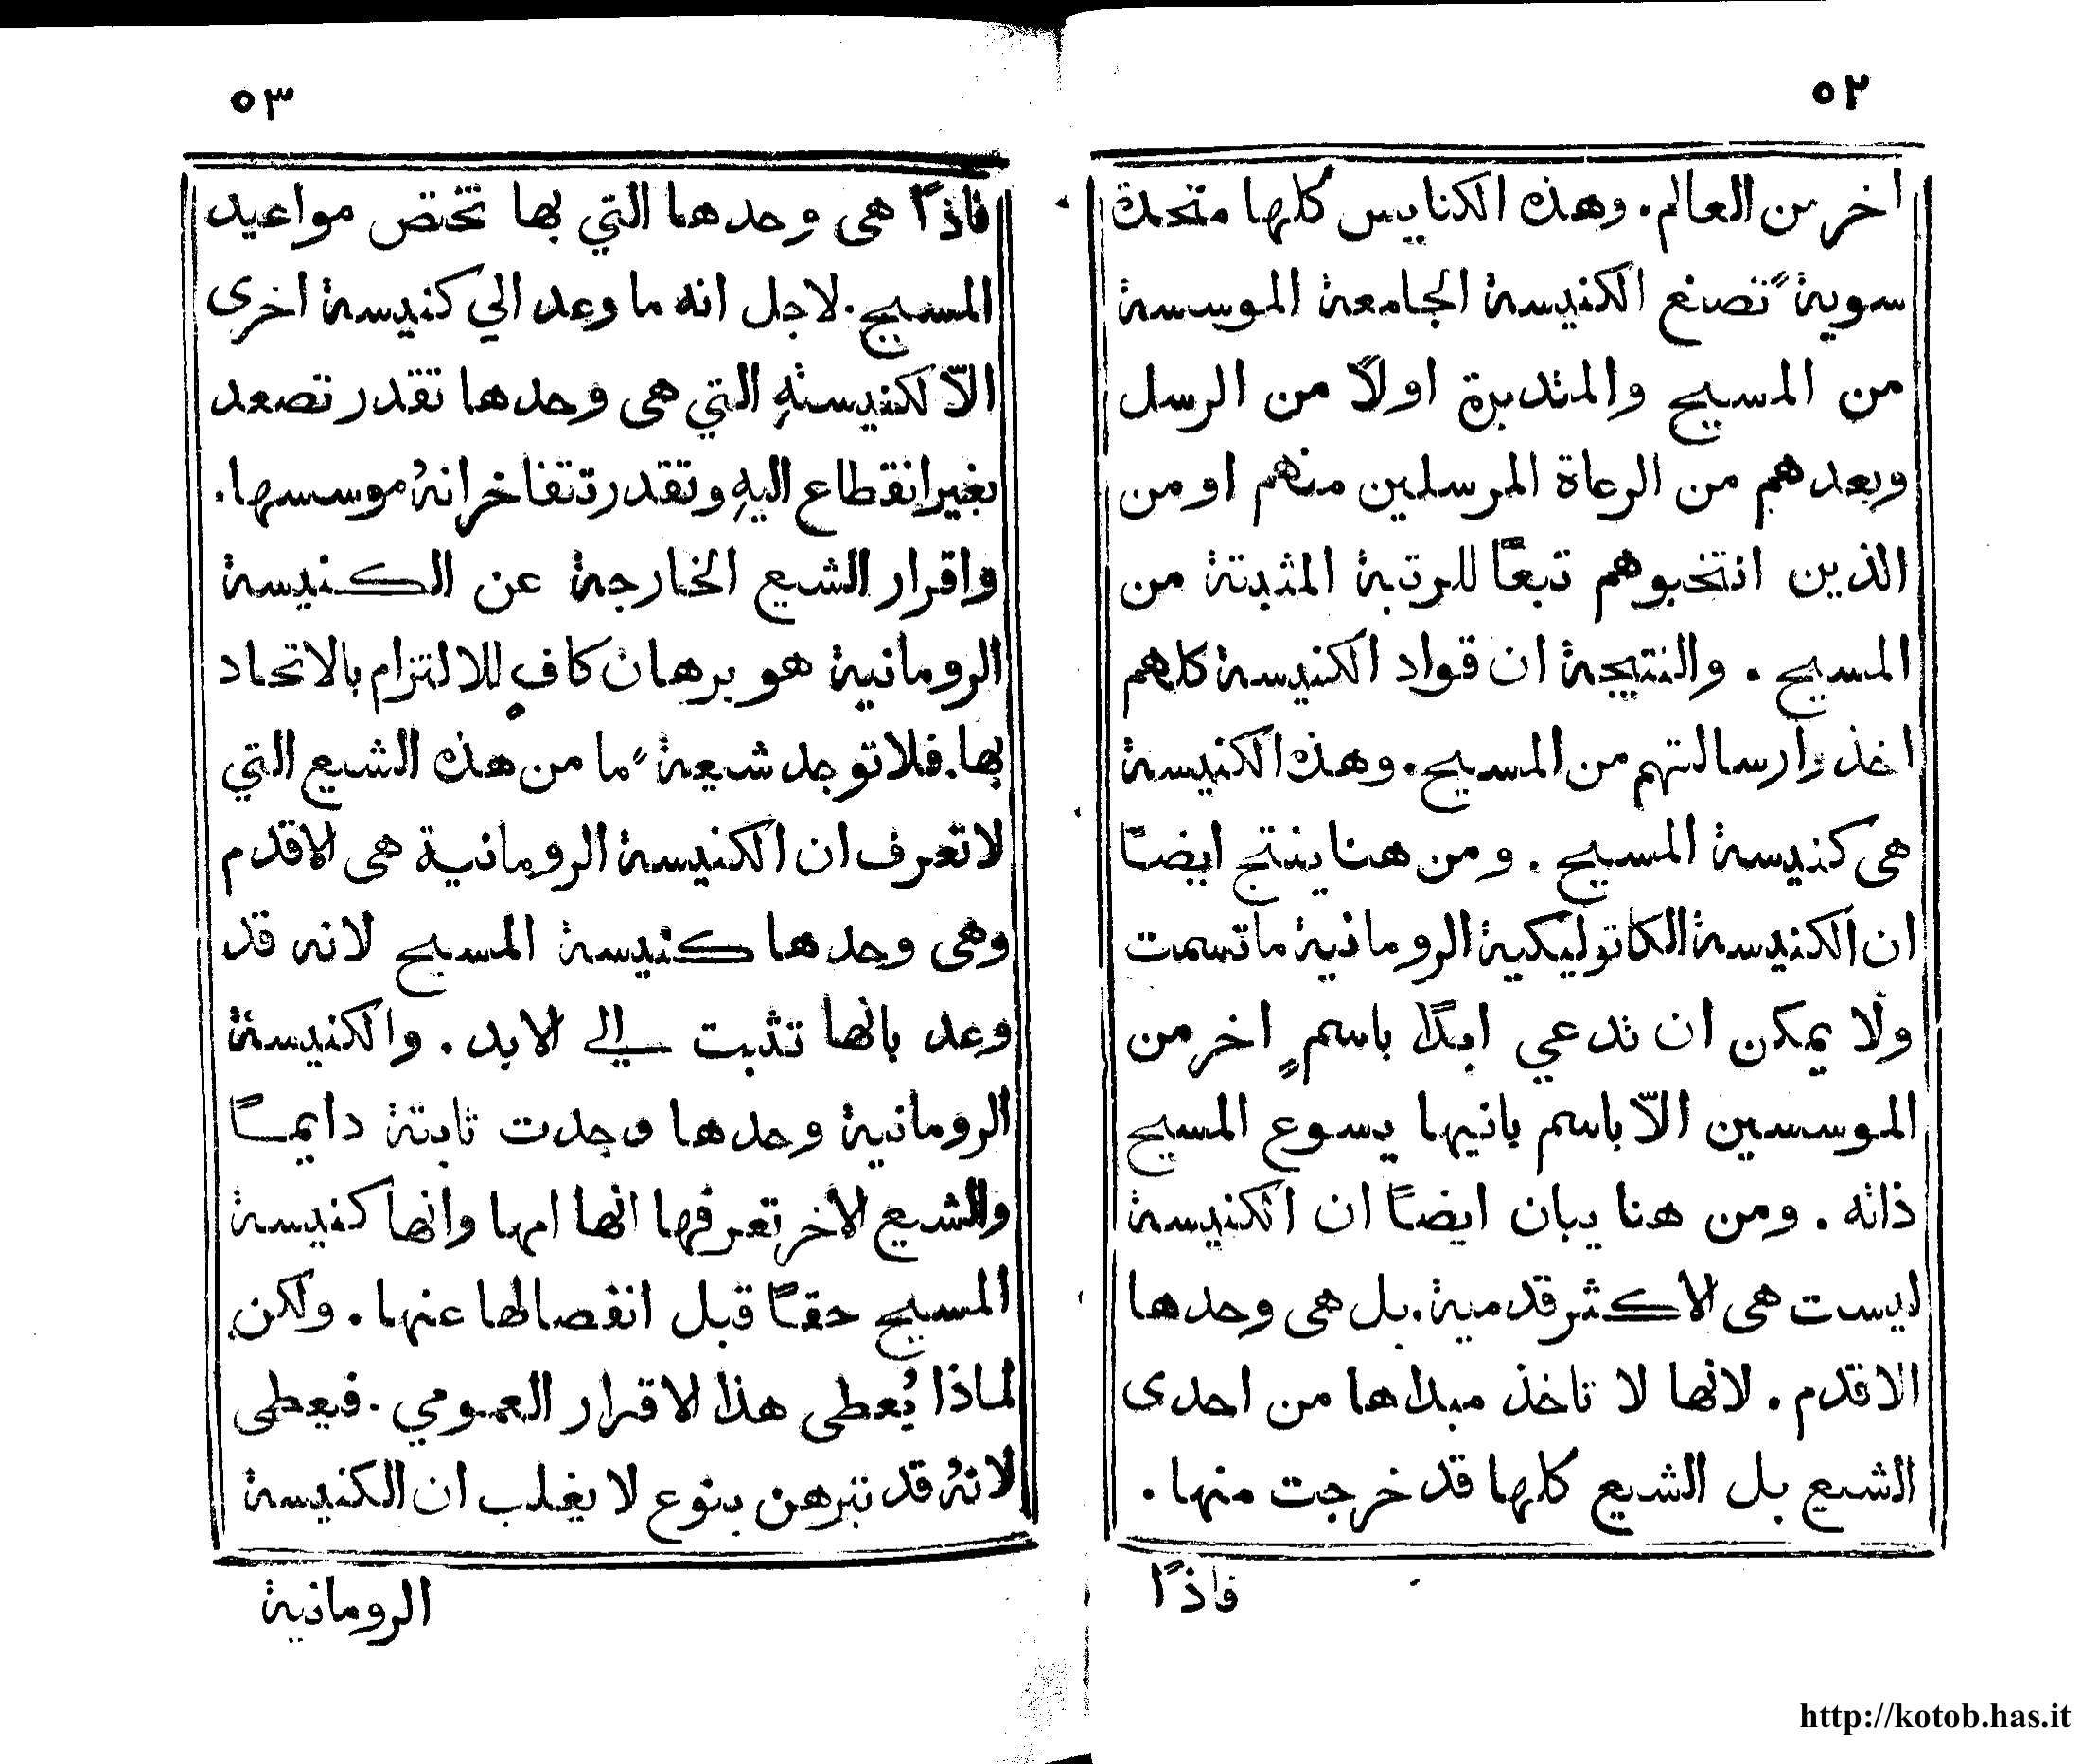 ٥٢
اخر من العالم. وهذه الكنايس كلها متحدة
سويةً تصنع الكنيسة الجامعة الموسسة
من المسيح والمتدبرة اولاً من الرسل
وبعدهم من الرعاة المرسلين منهم او من
الذين انتخبوهم تبعاً للرتبة المثبتة من
المسيح. والنتيجة ان قواد الكنيسة كلهم
اخذوا رسالتهم من المسيح. وهذه الكنيسة
هى كنيسة المسيح. ومن هنا ينتج ايضاً
ان الكنيسة الكاتوليكية الرومانية ما تسمت
ولا يمكن ان تدعي ابداً باسمٍ اخر من
الموسسين الاّ باسم بانيها يسوع المسيح
ذاته. ومن هنا يبان ايضاً ان الكنيسة
ليست هى الاكثر قدمية. بل هى وحدها
الاقدم. لانها لا تاخذ مبداها من احدى
الشيع بل الشيع كلها قد خرجت منها.
فاذاً
٥٣
فاذاً هى وحدها التي بها تختص مواعيد
المسيح. لاجل انه ما وعد الي كنيسة اخرى
الاّ لكنيستهِ التي هى وحدها تقدر تصعد
بغير انقطاع اليهِ وتقدر تتفاخر انهُ موسسها.
واقرار الشيع الخارجة عن الكنيسة
الرومانية هو برهان كافٍ للالتزام بالاتحاد
بها. فلا توجد شيعةً ما من هذه الشيع التي
لا تعرف ان الكنيسة الرومانية هى الاقدم
وهى وحدها كنيسة المسيح لانه قد
وعد بانها تثبت الى الابد. والكنيسة
الرومانية وحدها وجدت ثابتة دايماً
والشيع الاخر تعرفها انها امها وانها كنيسة
المسيح حقاً قبل انفصالها عنها. ولكن
لماذا يُعطى هذا الاقرار العمومي. فيعطى
لانهُ قد تبرهن بنوع لا يغلب ان الكنيسة
الرومانية
http://kotob.has.it